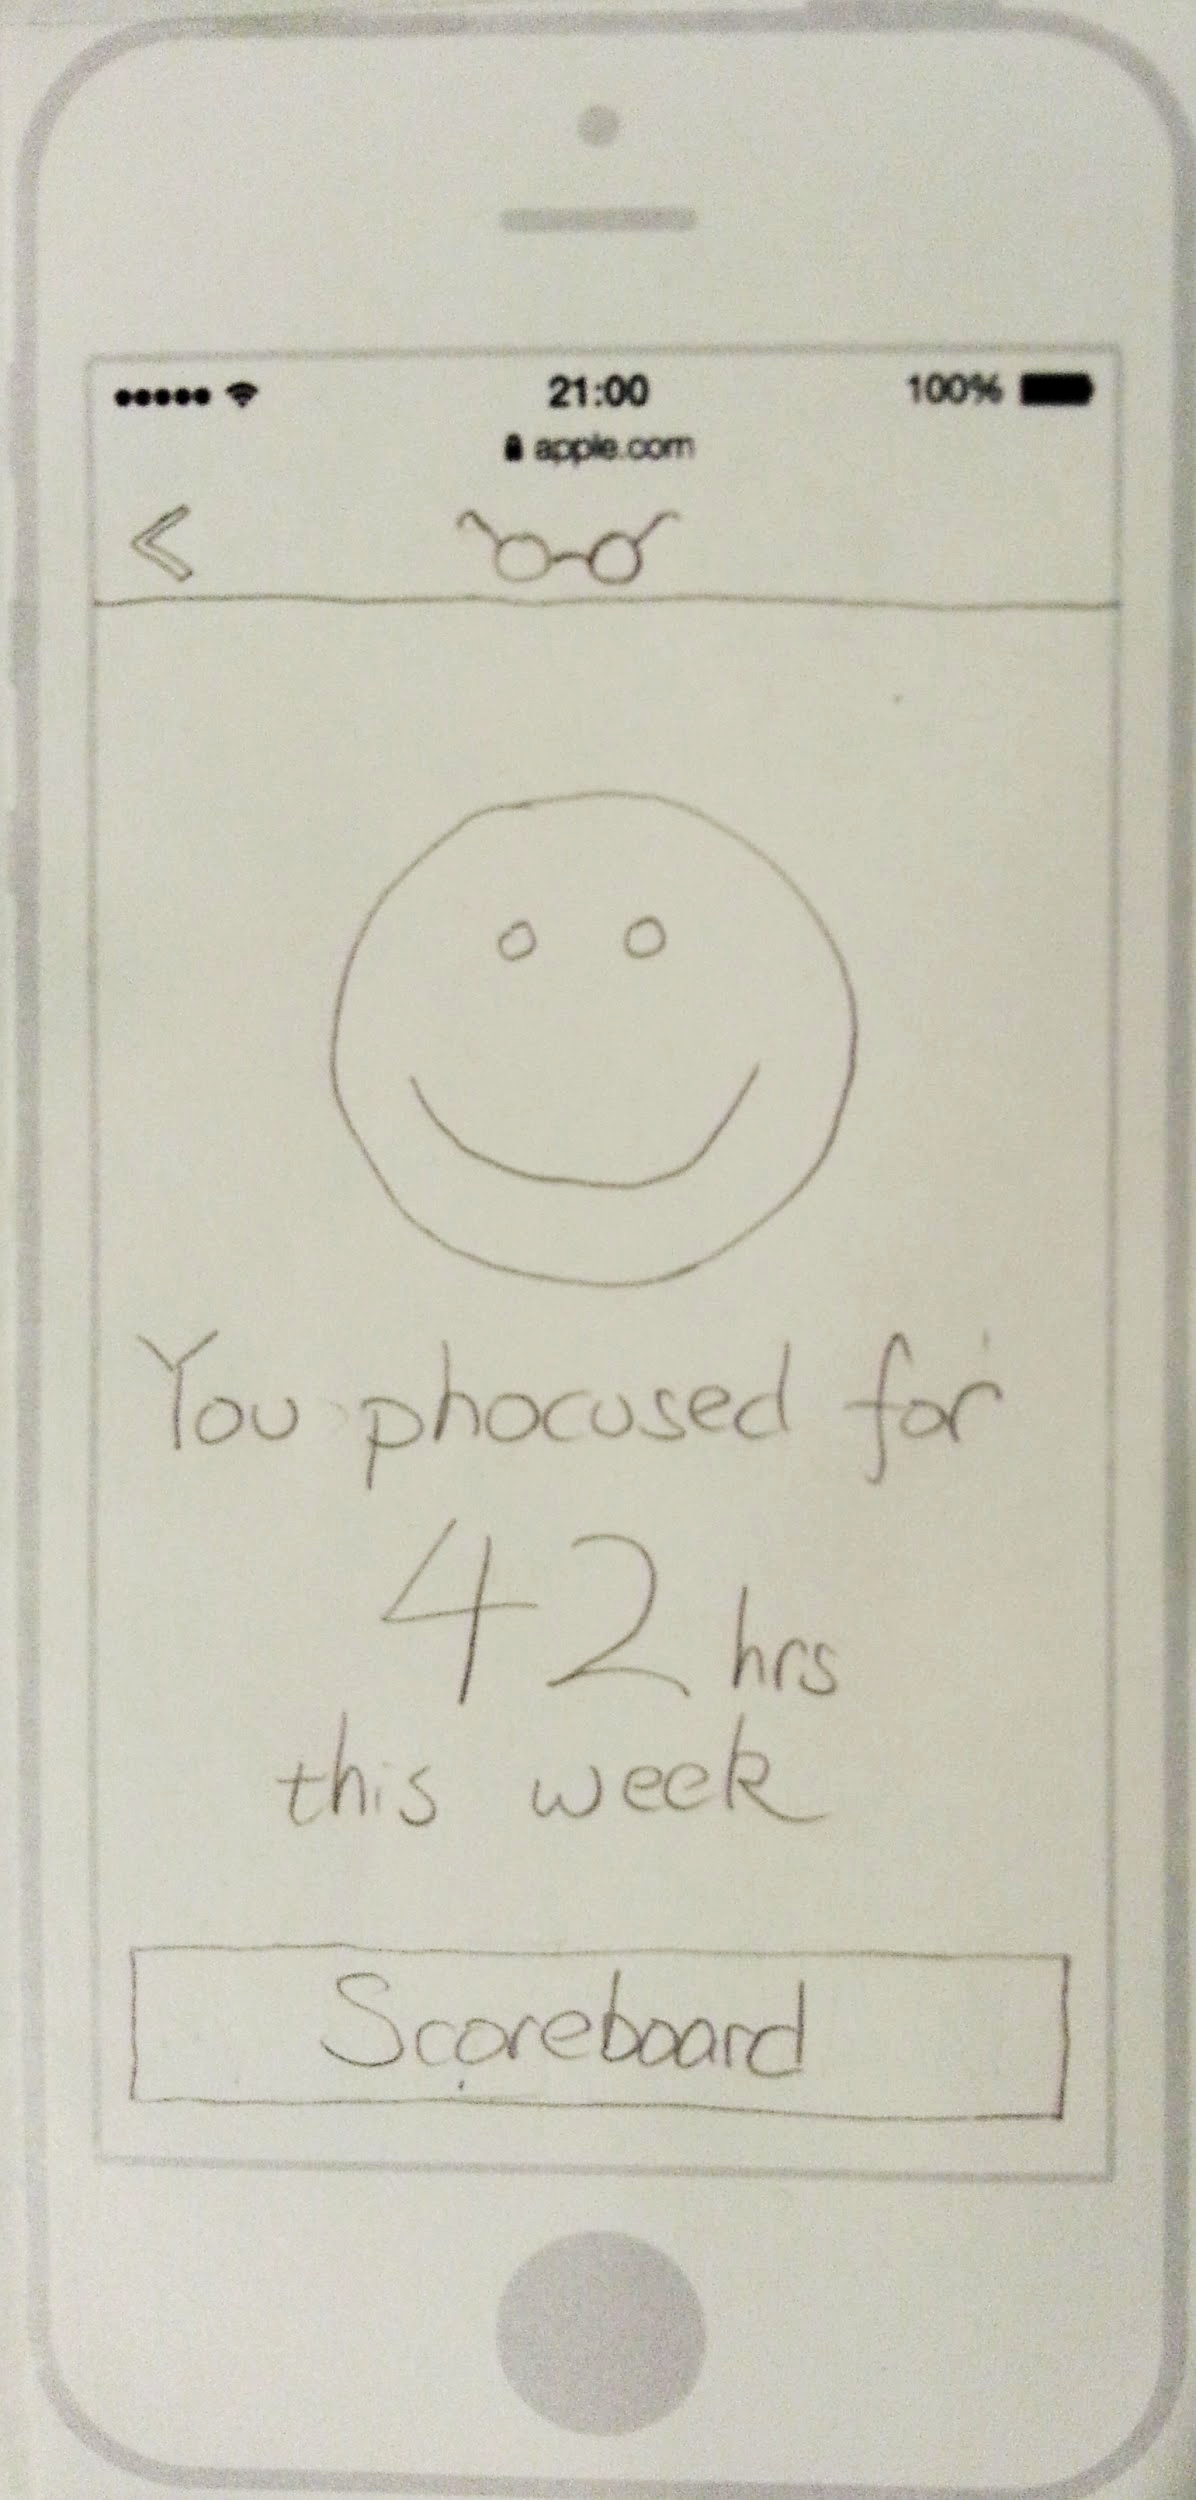 21:00 100%
apple.com
You phocused for
42 hrs
this week
Scoreboard